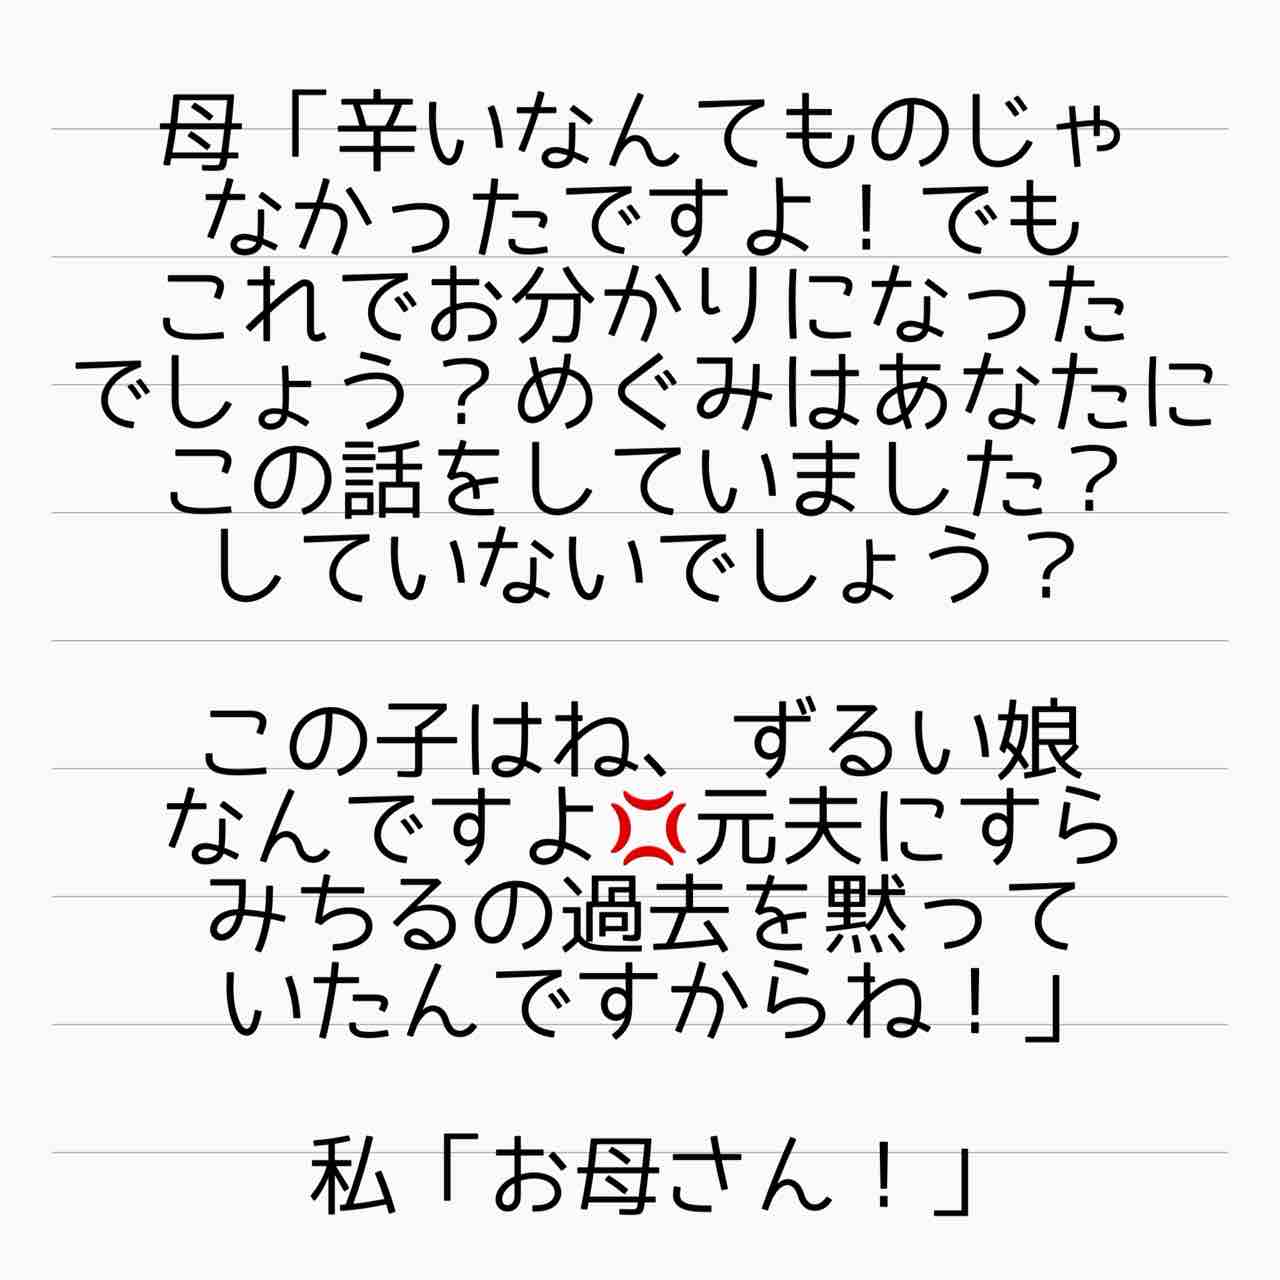 母「辛いなんてものじゃ
なかったですよ！でも
これでお分かりになった
でしょう？めぐみはあなたに
この話をしていました？
していないでしょう？
この子はね、ずるい娘
なんですよ💢元夫にすら
みちるの過去を黙って
いたんですからね！」
私「お母さん！」